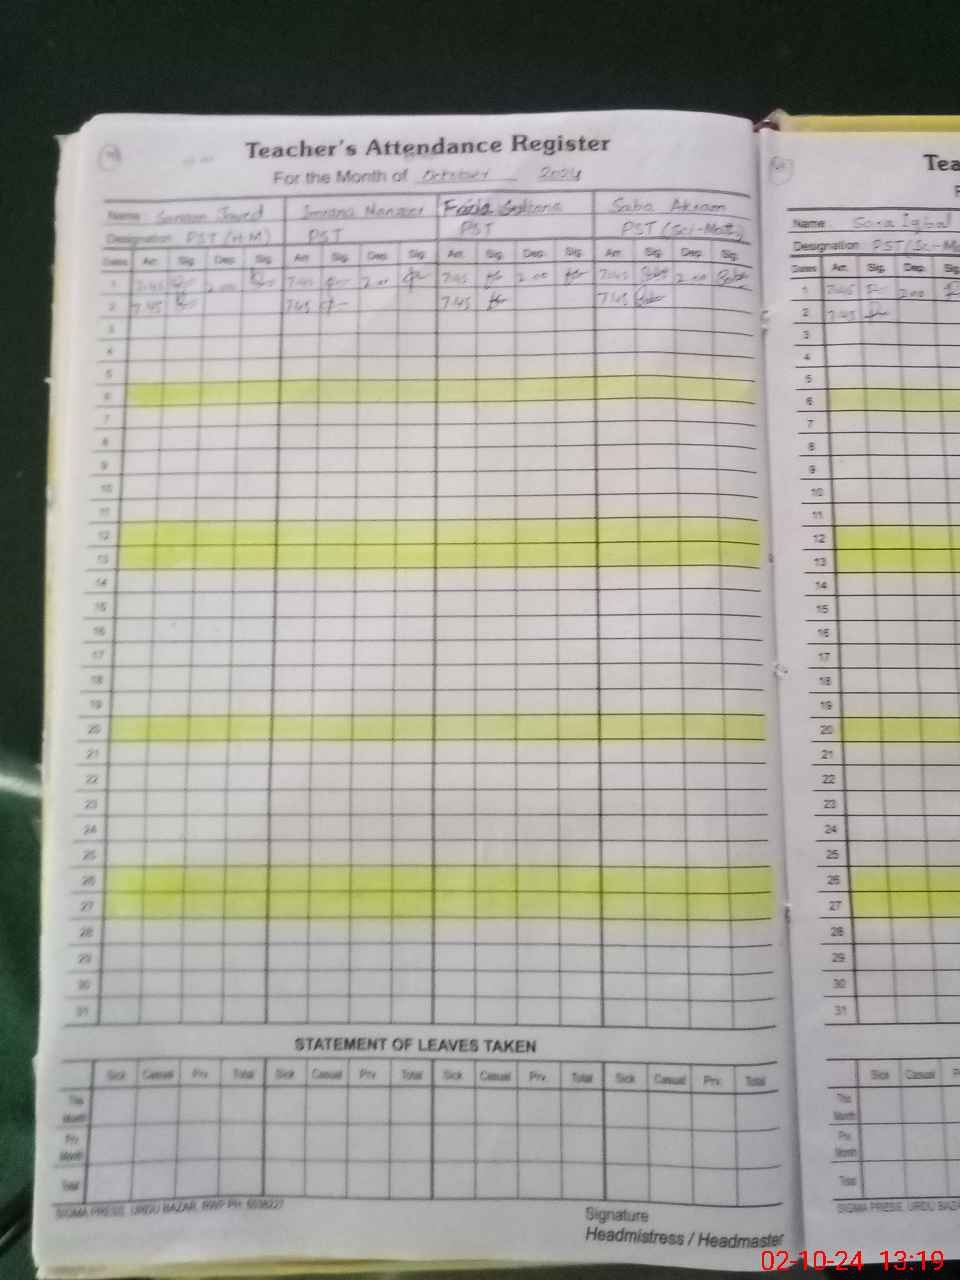 Teacher's Attendance Register
For the Month of October 2024
Name Javed Imrana Fazia Sultana Saba Akram
Designation PST (H.M) PST PST PST (Sci-Math)
Dates Arr. Sig. Dep. Sig. Arr. Sig. Dep. Sig. Arr. Sig. Dep. Sig. Arr. Sig. Dep. Sig.
1 7:45 2:00 7:45 2:00 7:45 2:00 7:45 Saba 2:00 Saba
2 7:45 7:45 7:45 7:45 Saba
3
4
5
6
7
8
9
10
11
12
13
14
15
16
17
18
19
20
21
22
23
24
25
26
27
28
29
30
31
STATEMENT OF LEAVES TAKEN
Sick Casual Prv. Total Sick Casual Prv. Total Sick Casual Prv. Total Sick Casual Prv. Total
This
Month
Prv.
Month
Total
SIGMA PRESS, URDU BAZAR, RWP PH:
Signature
Headmistress / Headmaster
Tea
F
Name: Sara Iqbal
Designation: PST (Sc-M
Dates Arr. Sig. Dep. Sig.
1 7:45 2:00
2 7:45
3
4
5
6
7
8
9
10
11
12
13
14
15
16
17
18
19
20
21
22
23
24
25
26
27
28
29
30
31
Sick Casual P
This
Month
Prv.
Month
Total
SIGMA PRESS, URDU BAZA
02-10-24 13:19